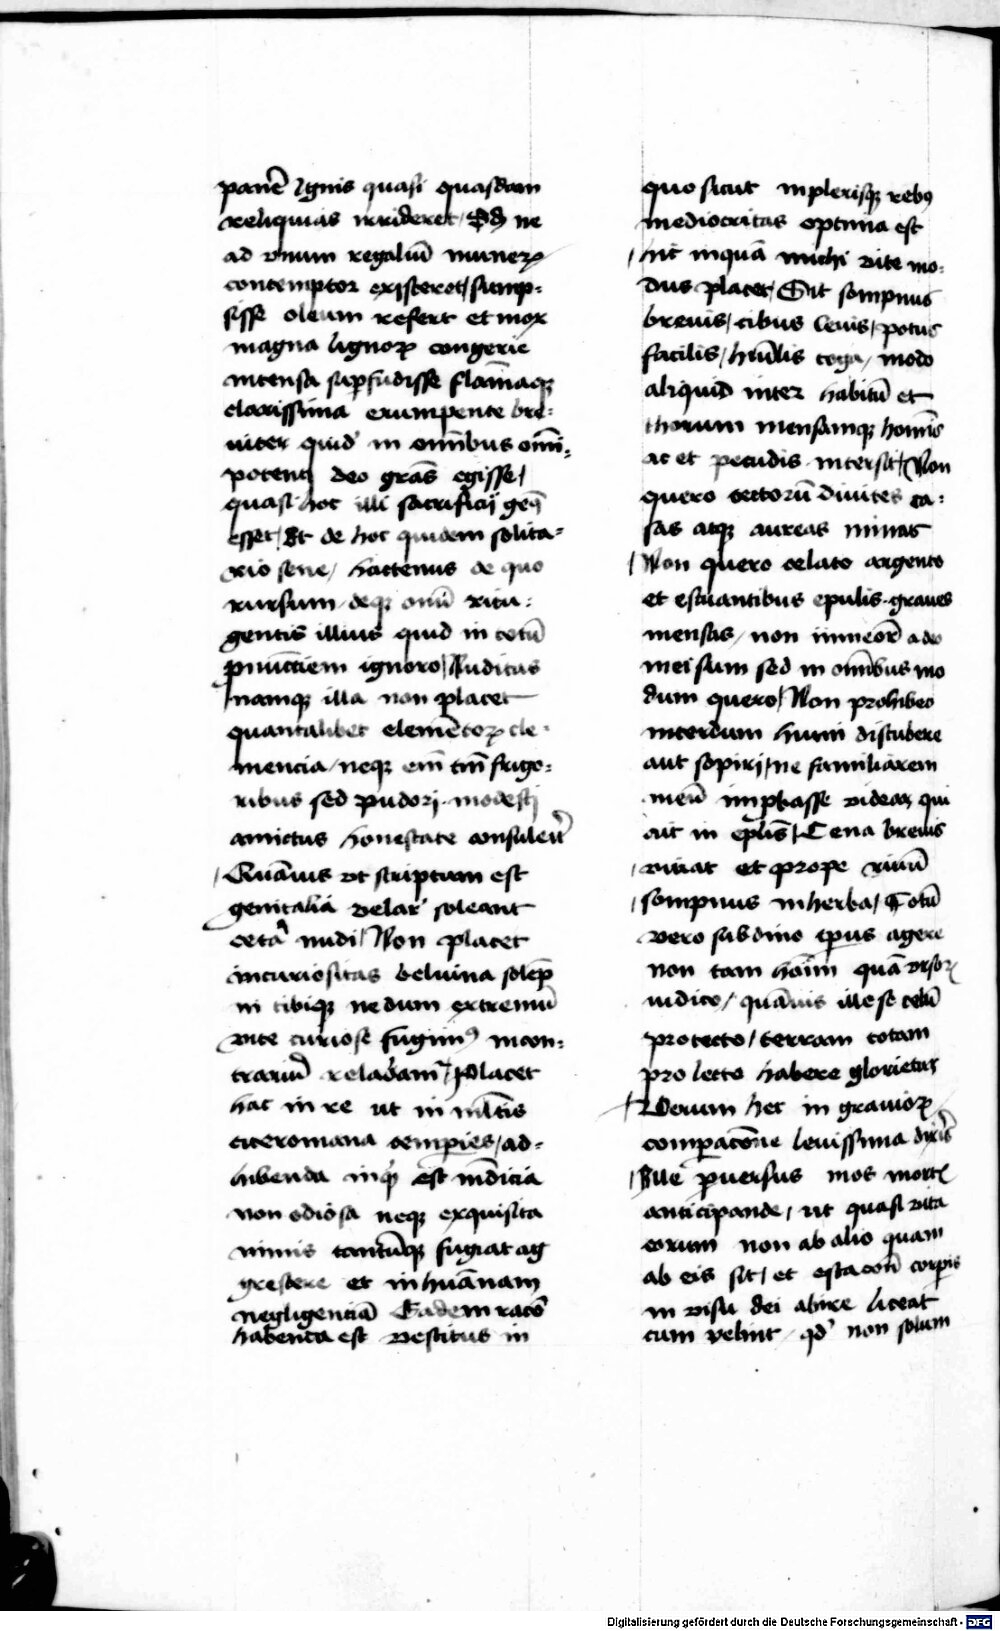 panē Ignis quasi quasdam
reliquias irrideret / Sꝫ ne
ad vnum regaliū munerꝝ
contemptor existeret / sump-
sisse oleum refert et mox
magna lignoꝝ congerie
incensa suꝑfudisse flāmaqꝫ
clarissima erumpente bre-
uiter quid in omībus omī-
potenti deo grās egisse /
quasi hoc illi sacrificij geñ
esset / Et de hoc quidem solita-
rio sene / hactenus de quo
rursum / deqꝫ omī ritu
gentis illius quid in cetū
ꝓnuncciem ignoro / Nuditas
namqꝫ illa non placet
quantalibet elementoꝝ cle-
mencia / neqꝫ em̄ tm̄ frigo-
ribus sed pudori modesti
amictus honestate consulerit
Quāuis vt scriptum est
genitalia velare soleant
cetera nudi / Non placet
incuriositas beluina solēp
ni cibiqꝫ nedum extremū
vite curiose fugimꝰ in con-
trariū reladam̄ / Placet
hac in re ut in ml̄tis
ciceromana temperies / ad-
hibenda inquit est mūdicia
non odiosa neqꝫ exquisita
nimis tantūqꝫ fugiat ag
grestere et inhūanam
negligenciā Eadem racō
habenda est vestitus in
quo sicut in plerisqꝫ rebꝰ
mediocritas optima est
hic inquā michi vite mo-
dus placet / Sit sompnus
breuis / cibus leuis / potus
facilis / hūilis toga / modo
aliquid inter habitū et
thorum mensamqꝫ hoīnis
ac et pecudis intersit / Non
quero tectorū diuites ca-
sas atqꝫ aureas minas
Non quero celato argento
et estuantibus epulis graues
mensas / non īmemor adeo
mei sum sed in omībus mo
dum quero / Non prohibeo
interdum humi discubere
aut sopiri / ne familiarem
meū improbasse videar qui
ait in epl̄is / Cena breuis
iuuat et prope riuū
sompnus in herba / Totū
vero sub diuo tp̄us agere
non tam hoīm quā vrsoꝝ
iudico / quāuis ille se celū
pro tecto / terram totam
pro lecto habere glorietur
Verum hec in grauioꝝ
comꝑacōne leuissima dixeris
Ille ꝑuersus mos mortis
anticipande / ut quasi vita
eorum non ab alio quam
ab eis sit / et estacōn corꝑis
in visu dei abire liceat
cum velint / qd̄ non solum
Digitalisierung gefördert durch die Deutsche Forschungsgemeinschaft - DFG